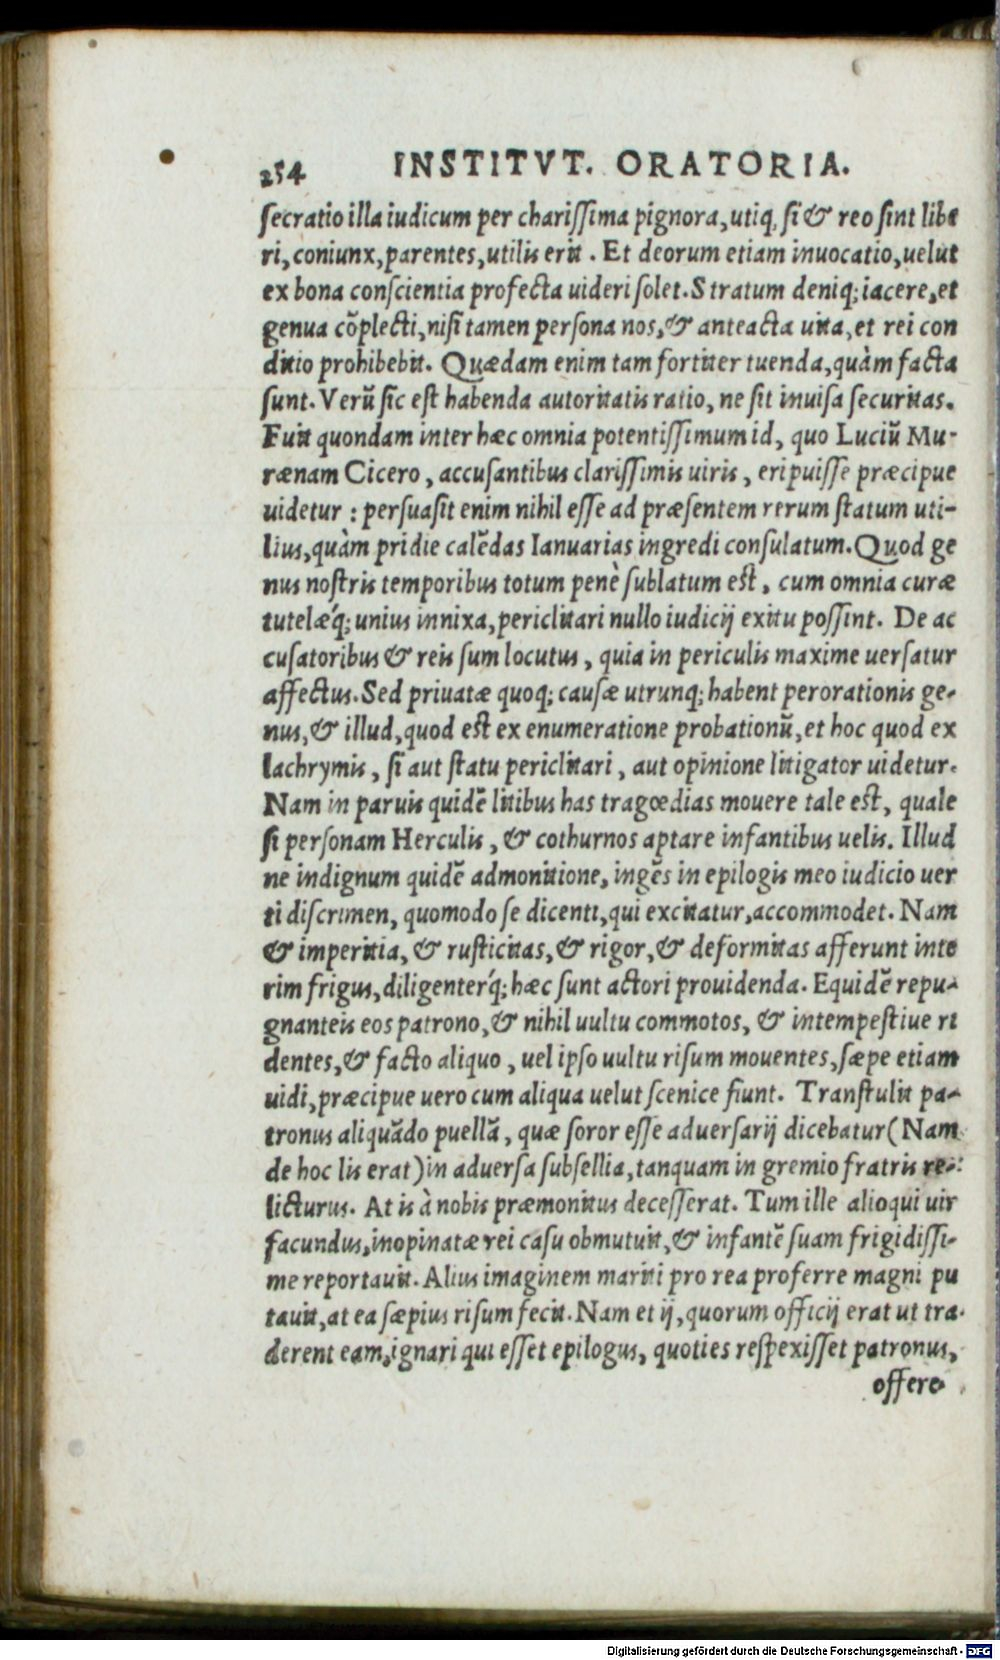 254 INSTITVT. ORATORIA.
secratio illa iudicum per charissima pignora, utiq; si & reo sint libe
ri, coniunx, parentes, utilis erit. Et deorum etiam inuocatio, uelut
ex bona conscientia profecta uideri solet. Stratum deniq; iacere, et
genua cõplecti, nisi tamen persona nos, & anteacta uita, et rei con
ditio prohibebit. Quædam enim tam fortiter tuenda, quàm facta
sunt. Verũ sic est habenda autoritatis ratio, ne sit inuisa securitas.
Fuit quondam inter hæc omnia potentissimum id, quo Luciũ Mu-
rænam Cicero, accusantibus clarissimis uiris, eripuisse præcipue
uidetur: persuasit enim nihil esse ad præsentem rerum statum uti-
lius, quàm pridie calẽdas Ianuarias ingredi consulatum. Quod ge
nus nostris temporibus totum penè sublatum est, cum omnia curæ
tutelæq́; unius innixa, periclitari nullo iudicij exitu possint. De ac
cusatoribus & reis sum locutus, quia in periculis maxime uersatur
affectus. Sed priuatæ quoq; causæ utrunq; habent perorationis ge-
nus, & illud, quod est ex enumeratione probationũ, et hoc quod ex
lachrymis, si aut statu periclitari, aut opinione litigator uidetur.
Nam in paruis quidẽ litibus has tragœdias mouere tale est, quale
si personam Herculis, & cothurnos aptare infantibus uelis. Illud
ne indignum quidẽ admonitione, ingẽs in epilogis meo iudicio uer
ti discrimen, quomodo se dicenti, qui excitatur, accommodet. Nam
& imperitia, & rusticitas, & rigor, & deformitas afferunt inte
rim frigus, diligenterq́; hæc sunt actori prouidenda. Equidẽ repu-
gnanteis eos patrono, & nihil uultu commotos, & intempestiue ri
dentes, & facto aliquo, uel ipso uultu risum mouentes, sæpe etiam
uidi, præcipue uero cum aliqua uelut scenice fiunt. Transtulit pa-
tronus aliquãdo puellã, quæ soror esse aduersarij dicebatur (Nam
de hoc lis erat) in aduersa subsellia, tanquam in gremio fratris re-
licturus. At is à nobis præmonitus decesserat. Tum ille alioqui uir
facundus, inopinatæ rei casu obmutuit, & infantẽ suam frigidissi-
me reportauit. Alius imaginem mariti pro rea proferre magni pu
tauit, at ea sæpius risum fecit. Nam et ij, quorum officij erat ut tra-
derent eam, ignari qui esset epilogus, quoties respexisset patronus,
offere-
Digitalisierung gefördert durch die Deutsche Forschungsgemeinschaft - DFG